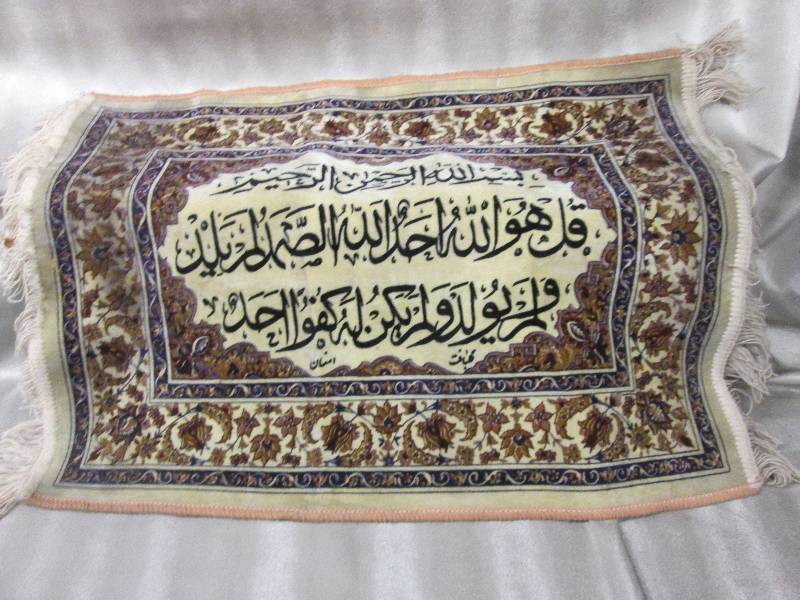 بسم الله الرحمن الرحيم
قُل هُوَ اللهُ اَحَدٌ اَللهُ الصَّمَد لَم يَلِد
وَلَم يُولَد وَلَم يَكُن لَهُ كُفُوًا اَحَد